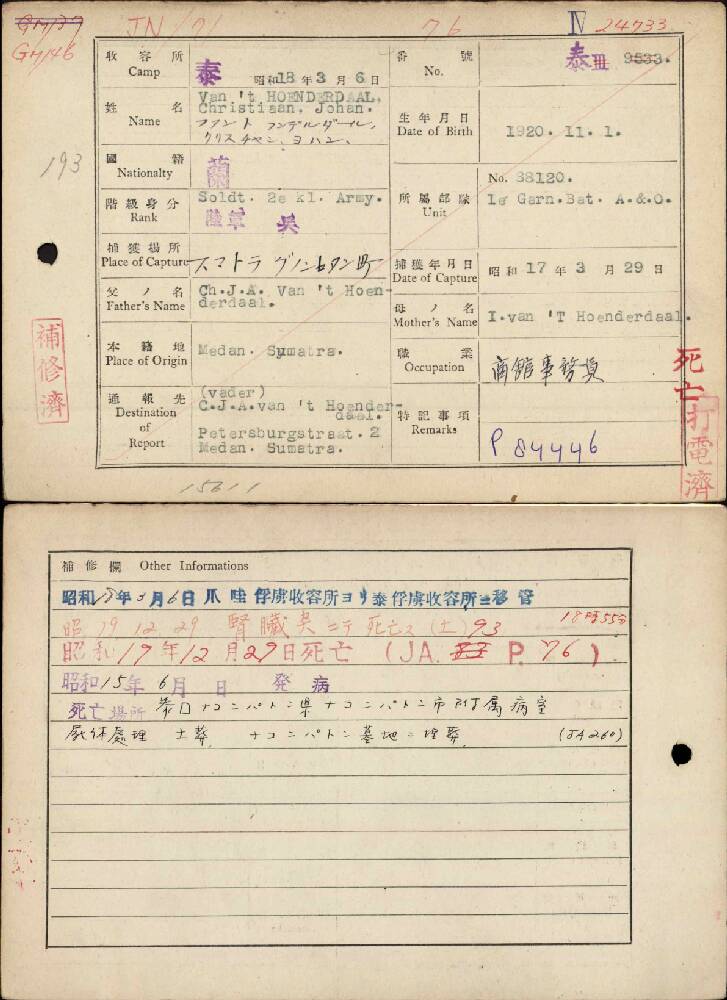 GM137
GM146
JN / 71
76
N 24733
收容所 Camp
泰
昭和18年3月6日
番號 No.
泰III 9533.
姓名 Name
Van 't HOENDERDAAL,
Christiaan. Johan.
生年月日 Date of Birth
1920. 11. 1.
193
國籍 Nationalty
蘭
階級身分 Rank
Soldt. 2e kl. Army.
陸軍
所屬部隊 Unit
No. 38120.
1e Garn.Bat. A.&.O.
捕獲場所 Place of Capture
スマトラ
捕獲年月日 Date of Capture
昭和17年3月29日
父ノ名 Father's Name
Ch.J.A. Van 't Hoen-
derdaal.
母ノ名 Mother's Name
I.van 'T Hoenderdaal.
本籍地 Place of Origin
Medan. Sumatra.
職業 Occupation
商館事務員
通報先 Destination of Report
(vader)
C.J.A.van 't Hoender-
daal.
Petersburgstraat. 2
Medan. Sumatra.
特記事項 Remarks
P 84446
補修濟
死亡
打電濟
15611
補修欄 Other Informations
昭和18年3月6日爪哇俘虜收容所ヨリ泰俘虜收容所ニ移管
昭 19 12 29 腎臓炎ニテ死亡ス(土)93
18時55分
昭和19年12月29日死亡 (JA. P. 76)
昭和 年6月 日 発病
死亡場所 ナコンパトン県ナコンパトン市附属病室
屍体處理 土葬 ナコンパトン墓地ニ埋葬 (JA260)